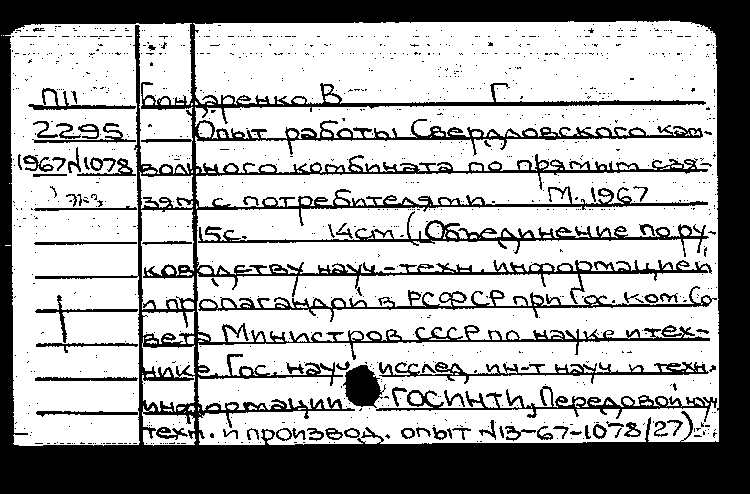 П11 Бондаренко, В Г.
2295 Опыт работы Свердловского кам-
1967 №1078 вольного комбината по прямым свя-
экз зям с потребителями. М., 1967
15с. 14см. („Объединение по ру-
ководству науч.-техн. информацией
и пропагандой в РСФСР при Гос. ком. Со-
вета Министров СССР по науке и тех-
нике. Гос. науч. исслед. ин-т науч. и техн.
информации. ГОСИНТИ, Передовой науч.
техн. и производ. опыт №13-67-1078/27)